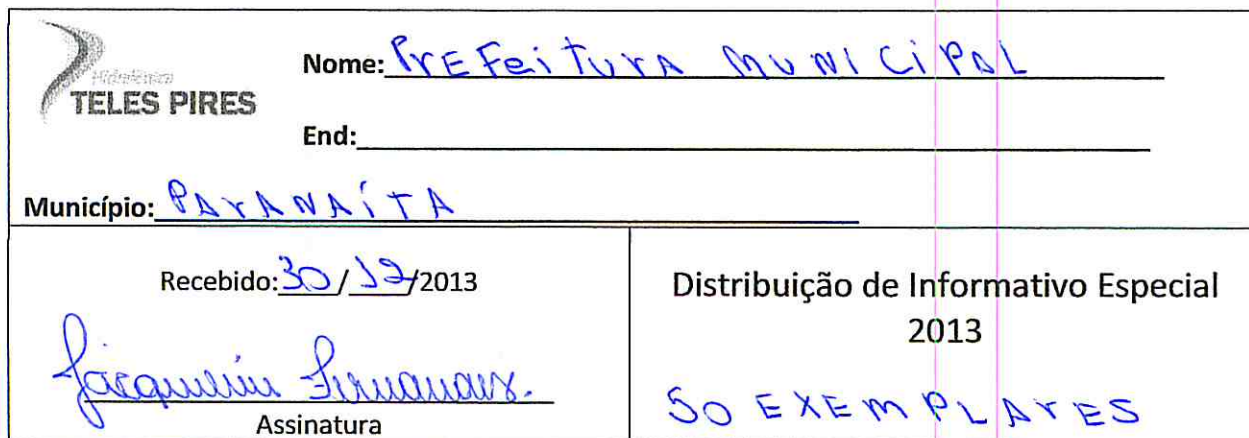 Hidrelétrica
TELES PIRES
Nome: PrEFeiTUrA MUNICiPAL
End:
Município: PArANAíTA
Recebido: 30/12/2013
Jacqueline Fernandes.
Assinatura
Distribuição de Informativo Especial
2013
50 EXEMPLArES